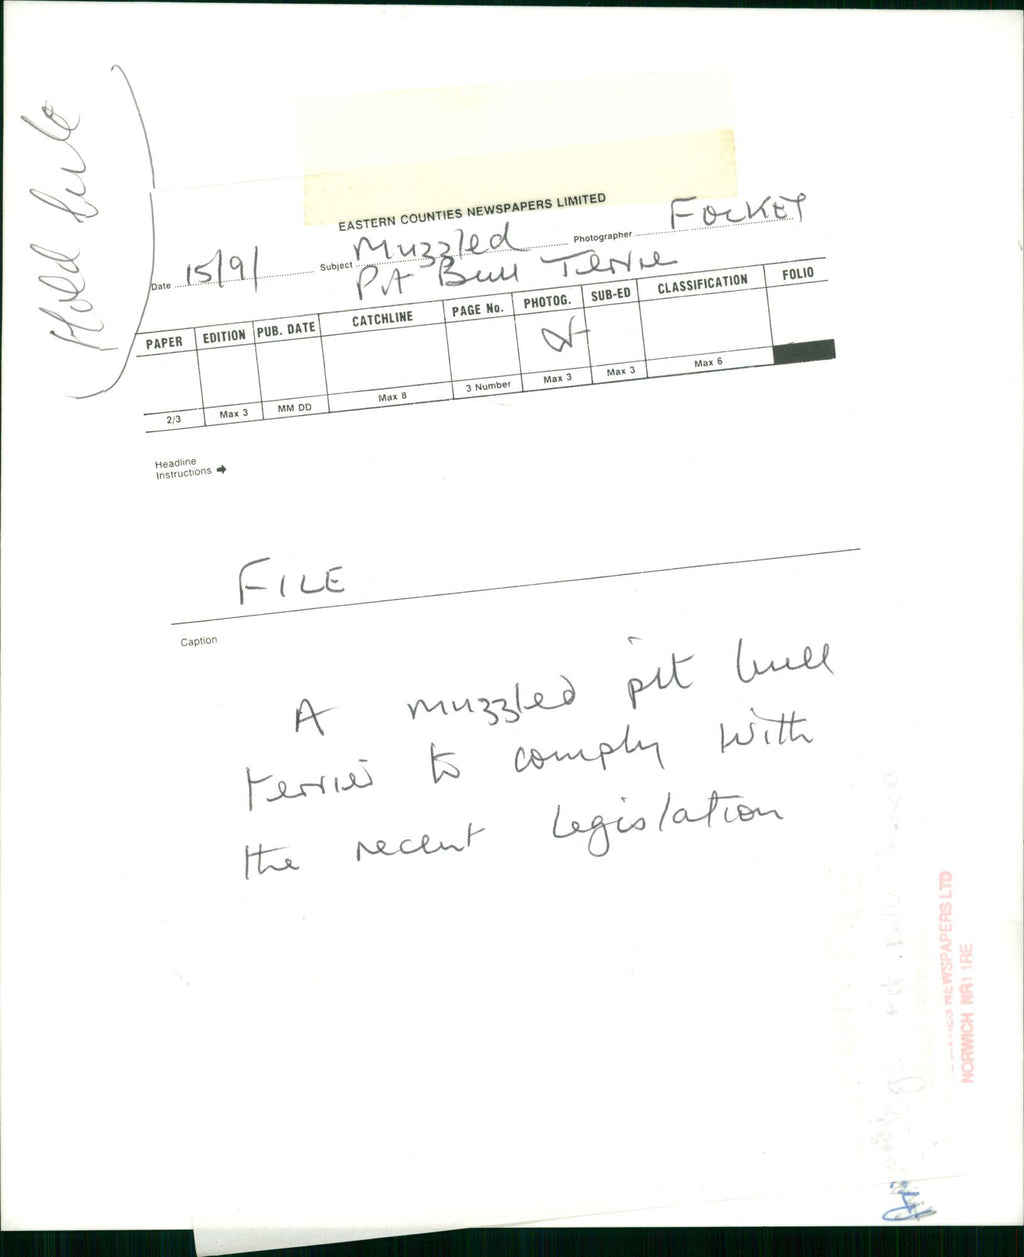 EASTERN COUNTIES NEWSPAPERS LIMITED
Date 15/9/ Subject Muzzled Photographer FOCKET
Pit Bull Terrie
PAPER EDITION PUB. DATE CATCHLINE PAGE No. PHOTOG. SUB-ED CLASSIFICATION FOLIO
2/3 Max 3 MM DD Max 8 3 Number Max 3 Max 3 Max 6
Headline
Instructions →
FILE
Caption
A muzzled pit bull
terrier to comply with
the recent legislation
Hold
NEWSPAPERS LTD
NORWICH NR1 1RE